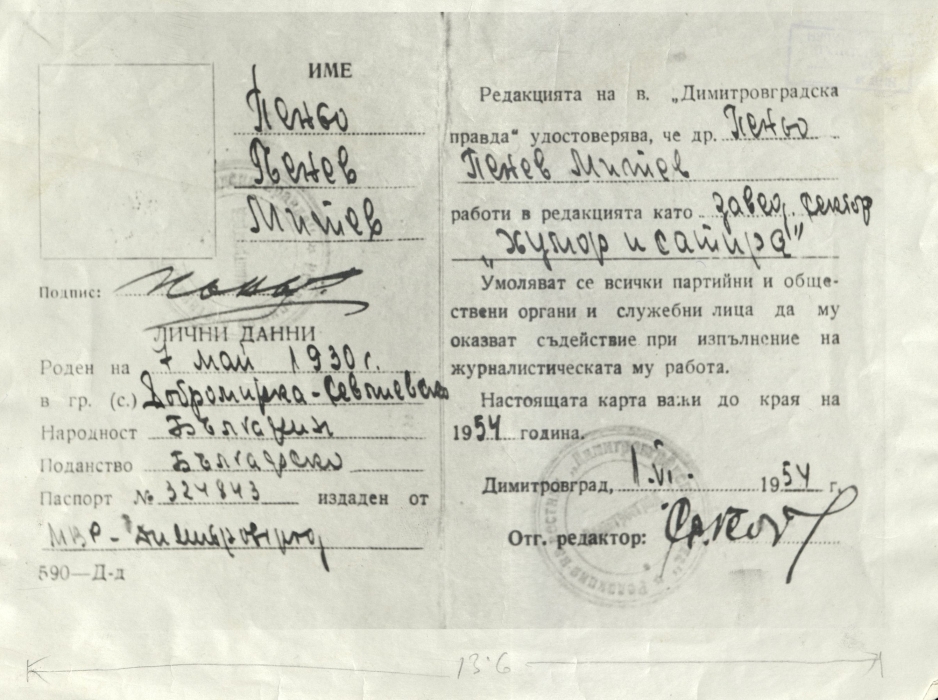 ИМЕ
Пеньо
Пенев
Митев
Подпис:
ЛИЧНИ ДАННИ
Роден на 7 май 1930 г.
в гр. (с.) Добромирка - Севлиевско
Народност Българин
Поданство Българско
Паспорт № 324843 издаден от
МВР - Димитровград
590—Д-д
Редакцията на в. „Димитровградска
правда“ удостоверява, че др. Пеньо
Пенев Митев
работи в редакцията като завед. сектор
„хумор и сатира“
Умоляват се всички партийни и обще-
ствени органи и служебни лица да му
оказват съдействие при изпълнение на
журналистическата му работа.
Настоящата карта важи до края на
1954 година.
Димитровград, 1. VI. 1954 г.
Отг. редактор:
13·6